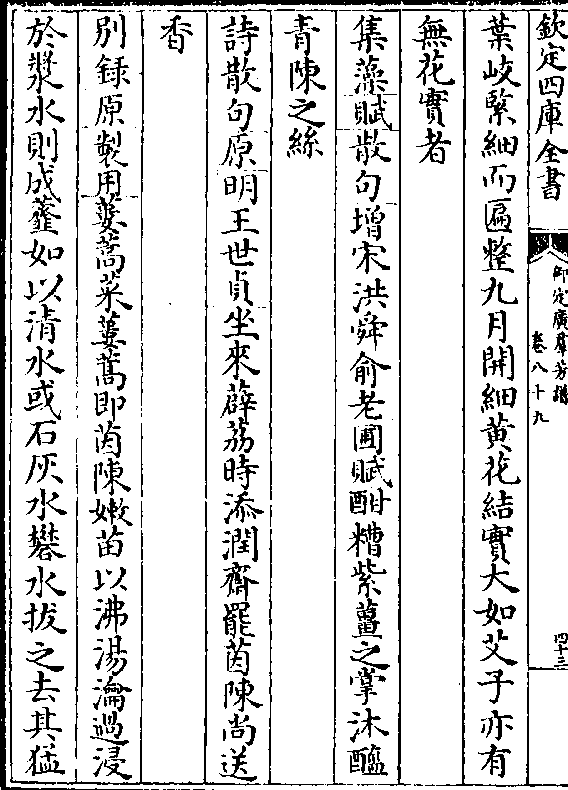 欽定四庫全書
御定廣羣芳譜
卷八十九
四十三
葉岐緊細而匾整九月開細黄花結實大如艾子亦有
無花實者
集藻賦散句增宋洪舜俞老圃賦酣糟紫薑之掌沐醯
青陳之絲
詩散句原明王世貞坐來薜荔時添潤齋罷茵陳尚送
香
別録原製用蔞蒿菜蔞蒿即茵陳嫩苗以沸湯瀹過浸
於漿水則成虀如以清水或石灰水礬水拔之去其猛